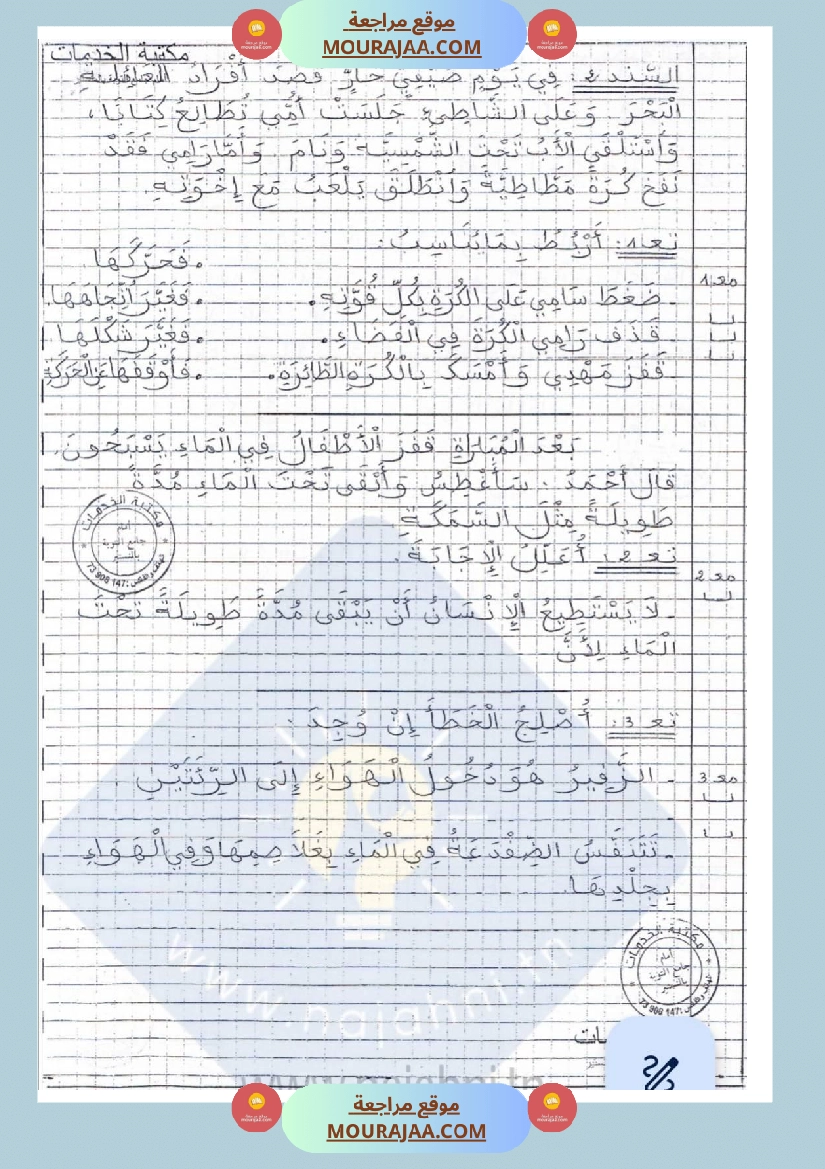 موقع مراجعة
MOURAJAA.COM
مكتبة الخدمات
السّند 2: فِي يَوْمٍ صَيْفِيٍّ حَارٍّ قصد أَفْرَادُ العائلة
الْبَحْرَ وَعَلَى الشَّاطِئِ جَلَسَتْ أُمِّي تُطَالِعُ كِتَابًا،
وَاسْتَلْقَى الْأَبُ تَحْتَ الشَّمْسِيَّةِ وَنَامَ وَأَمَّا رَامِي فَقَدْ
نَفَخَ كُرَةً مَطَّاطِيَّةً وَانْطَلَقَ يَلْعَبُ مَعَ إِخْوَتِهِ.
تعـ1: أَرْبُطُ بِمَا يُنَاسِبُ:
• فَحَرَّكَهَا
معـ1
- ضَغَطَ سَامِي عَلَى الْكُرَةِ بِكُلِّ قُوَّتِهِ. • فَغَيَّرَ اتِّجَاهَهَا.
- قَذَفَ رَامِي الْكُرَةَ فِي الْفَضَاءِ. • فَغَيَّرَ شَكْلَهَا
- قَفَزَ مَهْدِي وَأَمْسَكَ بِالْكُرَةِ الطَّائِرَةِ. • فَأَوْقَفَهَا عَنِ الْحَرَكَةِ
بَعْدَ الْمُبَارَاةِ قَفَزَ الْأَطْفَالُ فِي الْمَاءِ يَسْبَحُونَ.
قَالَ أَحْمَدُ: سَأَغْطِسُ وَأَبْقَى تَحْتَ الْمَاءِ مُدَّةً
طَوِيلَةً مِثْلَ السَّمَكَةِ
تعـ2: أُعَلِّلُ الْإِجَابَةَ.
معـ2
- لَا يَسْتَطِيعُ الْإِنْسَانُ أَنْ يَبْقَى مُدَّةً طَوِيلَةً تَحْتَ
الْمَاءِ لِأَنَّ
تعـ3: أُصْلِحُ الْخَطَأَ إِنْ وُجِدَ:
معـ3
- الزَّفِيرُ هُوَ دُخُولُ الْهَوَاءِ إِلَى الرِّئَتَيْنِ.
- تَتَنَفَّسُ الضِّفْدَعَةُ فِي الْمَاءِ بِغَلَاصِمِهَا وَفِي الْهَوَاءِ
بِجِلْدِهَا.
مكتبة الخدمات
www.najahni.tn
www.najahni.tn
موقع مراجعة
MOURAJAA.COM